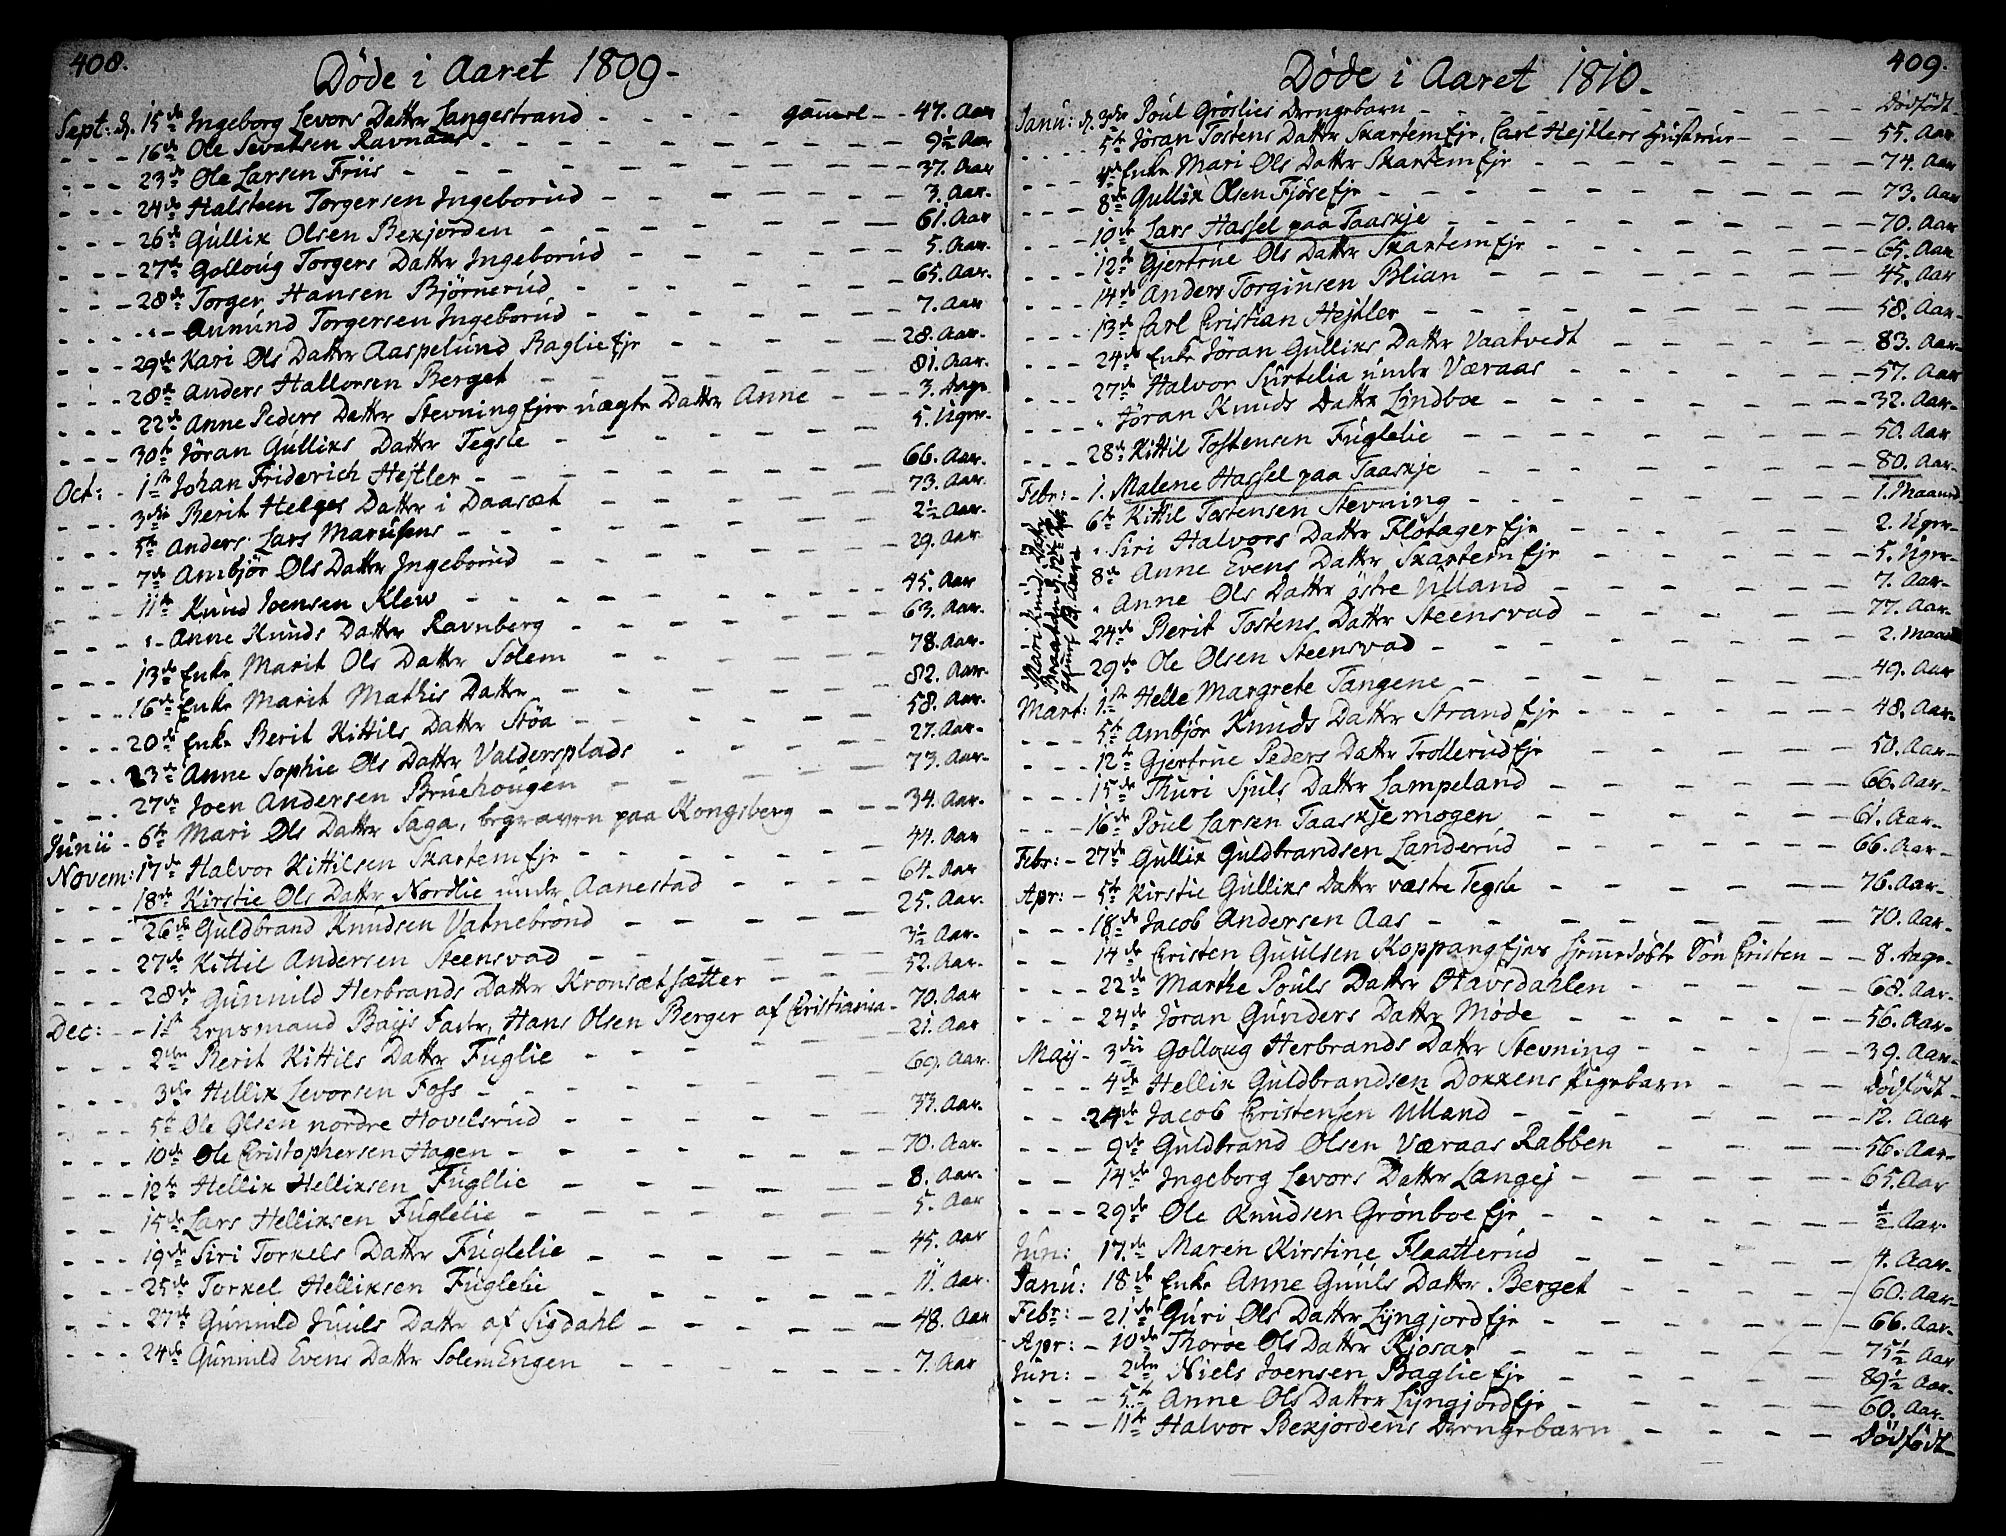 408.
Døde i Aaret 1809.
Sept: d. 15de Ingeborg Levors Datter Langestrand - - - - gammel - - 47. Aar
- - - 16de Ole Sevatsen Ravnaas - - - 9½ Aar
- - - 23de Ole Larsen Friis - - - 37. Aar
- - - 24de Halsteen Torgersen Ingeborud - - - 3. Aar.
- - - 26de Gullik Olsen Bekjorden - - - 61. Aar
- - - 27de Golloug Torgers Datter Ingeborud - - - 5. Aar.
- - - 28de Torger Hansen Bjørnerud - - - 65. Aar.
- - - Anund Torgersen Ingeborud - - - 7. Aar
- - - 29de Kari Ols Datter Aaspelund Baglie Eje - - - 28. Aar.
- - - 28de Anders Hallorsen Berget - - - 81. Aar.
- - - 22de Anne Peders Datter Stevning Ejes uægte Datter Anne - - - 3. Dage
- - - 30te Jøran Gulliks Datter Tegsle - - - 5. Uger.
Oct: - 1ste Johan Friderich Hejtler - - - 66. Aar.
- - - 3die Berit Helges Datter i Daasæt - - - 73. Aar
- - - 5te Anders Lars Marusens - - - 2½ Aar.
- - - 7de Ambjør Ols Datter Ingeborud - - - 29. Aar
- - - 11te Knud Joensen Klew - - - 45. Aar
- - - Anne Knuds Datter Ravnberg - - - 63. Aar.
- - - 13de Enke Marit Ols Datter Solem - - - 78. Aar.
- - - 16de Enke Marit Mathis Datter - - - 82. Aar.
- - - 20de Enke Berit Kittils Datter Støa - - - 58. Aar.
- - - 23de Anne Sophie Ols Datter Valdersplads - - - 27. Aar.
- - - 27de Joen Andersen Bruehougen - - - 73. Aar.
Junii - 6te Mari Ols Datter Saga, begraven paa Kongsberg - - - 34. Aar.
Novem: 17de Halvor Kittilsen Skartem Eje - - - 44. Aar
- - - 18de Kirstie Ols Datter Nordlie under Aanestad - - - 64. Aar
- - - 26de Guldbrand Knudsen Vatnebrønd - - - 25. Aar.
- - - 27de Kittil Andersen Steensvad - - - 3½ Aar.
- - - 28de Gunnild Herbrands Datter Kronsætsætter - - - 52. Aar.
Dec: - - 1ste Baÿs Fader, Hans Olsen Berger af Christiania - 70. Aar
2den Berit Kittils Datter Fuglie - - - 21. Aar
- - - 3die Hellik Levorsen Foss - - - 69. Aar.
- - - 5te Ole Olsen nordre Hovelsrud - - - 33. Aar.
- - - 10de Ole Christophersen Hagen - - - 70. Aar.
- - - 12te Hellik Helliksen Fugllie - - - 8. Aar.
- - - 15de Lars Helliksen Fuglelie - - - 5. Aar
- - - 19de Siri Torkels Datter Fuglelie - - - 45. Aar
- - - 25de Torkel Helliksen Fuglelie - - - 11. Aar.
- - - 27de Gunnild Juuls Datter af Sigdahl - - - 48. Aar
- - - 24de Gunnild Evens Datter Solem Engen - - - 7. Aar
409.
Døde i Aaret 1810.
Janu: d. 3die Poul Grøslies Drengebarn - - - Dødfødt
- - - 5te Jøran Tostens Datter Skartem Eje, Carl Hejtlers Hustrue - - - 55. Aar
- - - Enke Mari Ols Datter Skartem Eje - - - 74. Aar
- - - 8de Gullik Olsen Fjøse Eje - - - 73. Aar
- - - 10de Lars Hassel paa Taaskje - - - 70. Aar
- - - 12te Gjertrue Ols Datter Skartem Eje - - - 65. Aar
- - - 14de Anders Torginsen Blian - - - 45. Aar
- - - 13de Carl Christian Hejtler - - - 58. Aar.
- - - 24de Enke Jøran Gulliks Datter Vaatvedt - - - 83. Aar.
- - - 27de Halvor Surtelia under Væraas - - - 57. Aar
- - - Jøran Knuds Datter Lyndboe - - - 32. Aar.
- - - 28de Kittil Tostensen Fuglelie - - - 50. Aar
Febr: - 1. Malene Hassel paa Taaskje - - - 80. Aar.
6te Kittil Tostensen Stevning - - - 1. Maaned
Siri Halvors Datter Fløtager Eje - - - 2. Uger.
8de Anne Evens Datter Skartem Eje - - - 5. Uger.
Anne Ols Datter østre Ulland - - - 7. Aar.
24de Berit Tostens Datter Steensvad - - - 77. Aar.
29de Ole Olsen Steensvad - - - 2. Maan
Mari Knuds Datter
Braaten d. 12te Febr.
19 Aar
Mart: 1ste Helle Margrete Tangene - - - 49. Aar
- - - 5te Ambjør Knuds Datter Strand Eje - - - 48. Aar.
- - - 12te Gjertrue Peders Datter Trollerud Eje - - - 50. Aar
- - - 15de Thuri Sjuls Datter Lampeland - - - 66. Aar.
- - - 16de Poul Larsen Taaskjemogen - - - 61. Aar.
Febr: - 27de Gullik Guldbrandsen Landerud - - - 66. Aar
Apr: - 5te Kirstie Gulliks Datter væstre Tegsle - - - 76. Aar.
- - - 18de Jacob Andersen Aas - - - 70. Aar.
- - 14de Christen Guulsen Koppang Ejes hjemmedøbte Søn Christen - - 8. Dage.
- - - 22de Marthe Pouls Datter Havsdahlen - - - 68. Aar.
- - - 24de Jøran Gunders Datter Møde - - - 56. Aar.
Maÿ - 3die Golloug Herbrands Datter Stevning - - - 39. Aar.
- - - 4de Hellik Guldbrandsen Dokkens Pigebarn - - - Dødfødt
- - - 24de Jacob Christensen Ulland - - - 12. Aar
- - - 9de Guldbrand Olsen Væraas Rabben - - - 56. Aar.
- - 14de Ingeborg Levors Datter Langej - - - 65. Aar
- - - 29de Ole Knudsen Grønboe Eje - - - ½ Aar.
Jun: 17de Maren Kirstine Flaatterud - - - 4. Aar.
Janu: 18de Enke Anne Guuls Datter Berget - - - 60. Aar.
Febr: - 21de Guri Ols Datter Lyngjord Eje - - - 66. Aar.
Apr: - 10de Thorøe Ols Datter Kjosar - - - 75½ Aar
Jun: - 2den Niels Joensen Baglie Eje - - - 89½ Aar.
- - - 5te Anne Ols Datter Lyngjord Eje - - - 60. Aar.
- - - 11te Halvor Bekjordens Drengebarn - - - Dødfødt